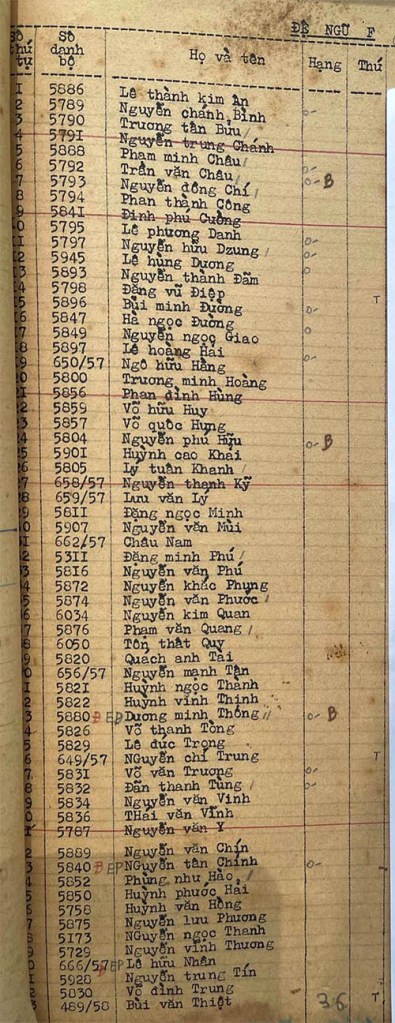 ĐỆ NGŨ F
Số thứ tự Số danh bộ Họ và tên Hạng Thứ
1 5886 Lê thành kim Ân
2 5789 Nguyễn chánh Bình o-
3 5790 Trương tân Bửu /
4 5791 Nguyễn trung Chánh
5 5888 Phạm minh Châu /
6 5792 Trần văn Châu / o-
7 5793 Nguyễn đồng Chí / o- B
8 5794 Phan thành Công
9 5841 Đinh phú Cường
0 5795 Lê phương Danh
11 5797 Nguyễn hữu Dzung / o-
12 5945 Lê hùng Dương o-
13 5893 Nguyễn thành Đãm o
14 5798 Đặng vũ Điệp T
15 5896 Bùi minh Đường o-
16 5847 Hà ngọc Đường
17 5849 Nguyễn ngọc Giao o
18 5897 Lê hoàng Hải
19 650/57 Ngô hữu Hằng o-
20 5800 Trương minh Hoàng
21 5856 Phan đình Hùng
22 5859 Võ hữu Huy
23 5857 Võ quốc Hưng
24 5804 Nguyễn phú Hữu o- B
25 5901 Huỳnh cao Khải
26 5805 Lý tuấn Khanh /
27 658/57 Nguyễn thanh Kỹ
28 659/57 Lưu văn Lý
29 5811 Đặng ngọc Minh
0 5907 Nguyễn văn Mùi
1 662/57 Châu Nam
2 5311 Đặng minh Phú /
3 5816 Nguyễn văn Phú
4 5872 Nguyễn khắc Phụng
5 5874 Nguyễn văn Phước /
6 6034 Nguyễn kim Quan
7 5876 Phạm văn Quang /
8 6050 Tôn thất Quy
9 5820 Quách anh Tài
0 656/57 Nguyễn mạnh Tân
1 5821 Huỳnh ngọc Thành
2 5822 Huỳnh vinh Thịnh
3 5880 Đ EP Dương minh Thông // o- B
4 5826 Võ thanh Tòng
5 5829 Lê đức Trọng
6 649/57 NGuyễn chí Trung T
7 5831 Võ văn Trương o-
8 5832 Đẩn thanh Tùng / o-
9 5834 Nguyễn văn Vinh
0 5836 THái văn Vĩnh
1 5787 Nguyễn văn Y
2 5889 Nguyễn văn Chín
3 5840 Đ EP NGuyễn tấn Chính o-
4 5852 Phùng như Hảo /
5 5850 Huỳnh phước Hải
6 5758 Huỳnh văn Hồng
7 5875 Nguyễn lưu Phương
8 5173 NGuyễn ngọc Thanh
9 5729 Nguyễn vĩnh Thương
0 666/57 Đ EP Lê hữu Nhân
1 5928 Nguyễn trung Tín
2 5830 Võ đình Trung T
3 489/58 Bùi văn Thiệt 36